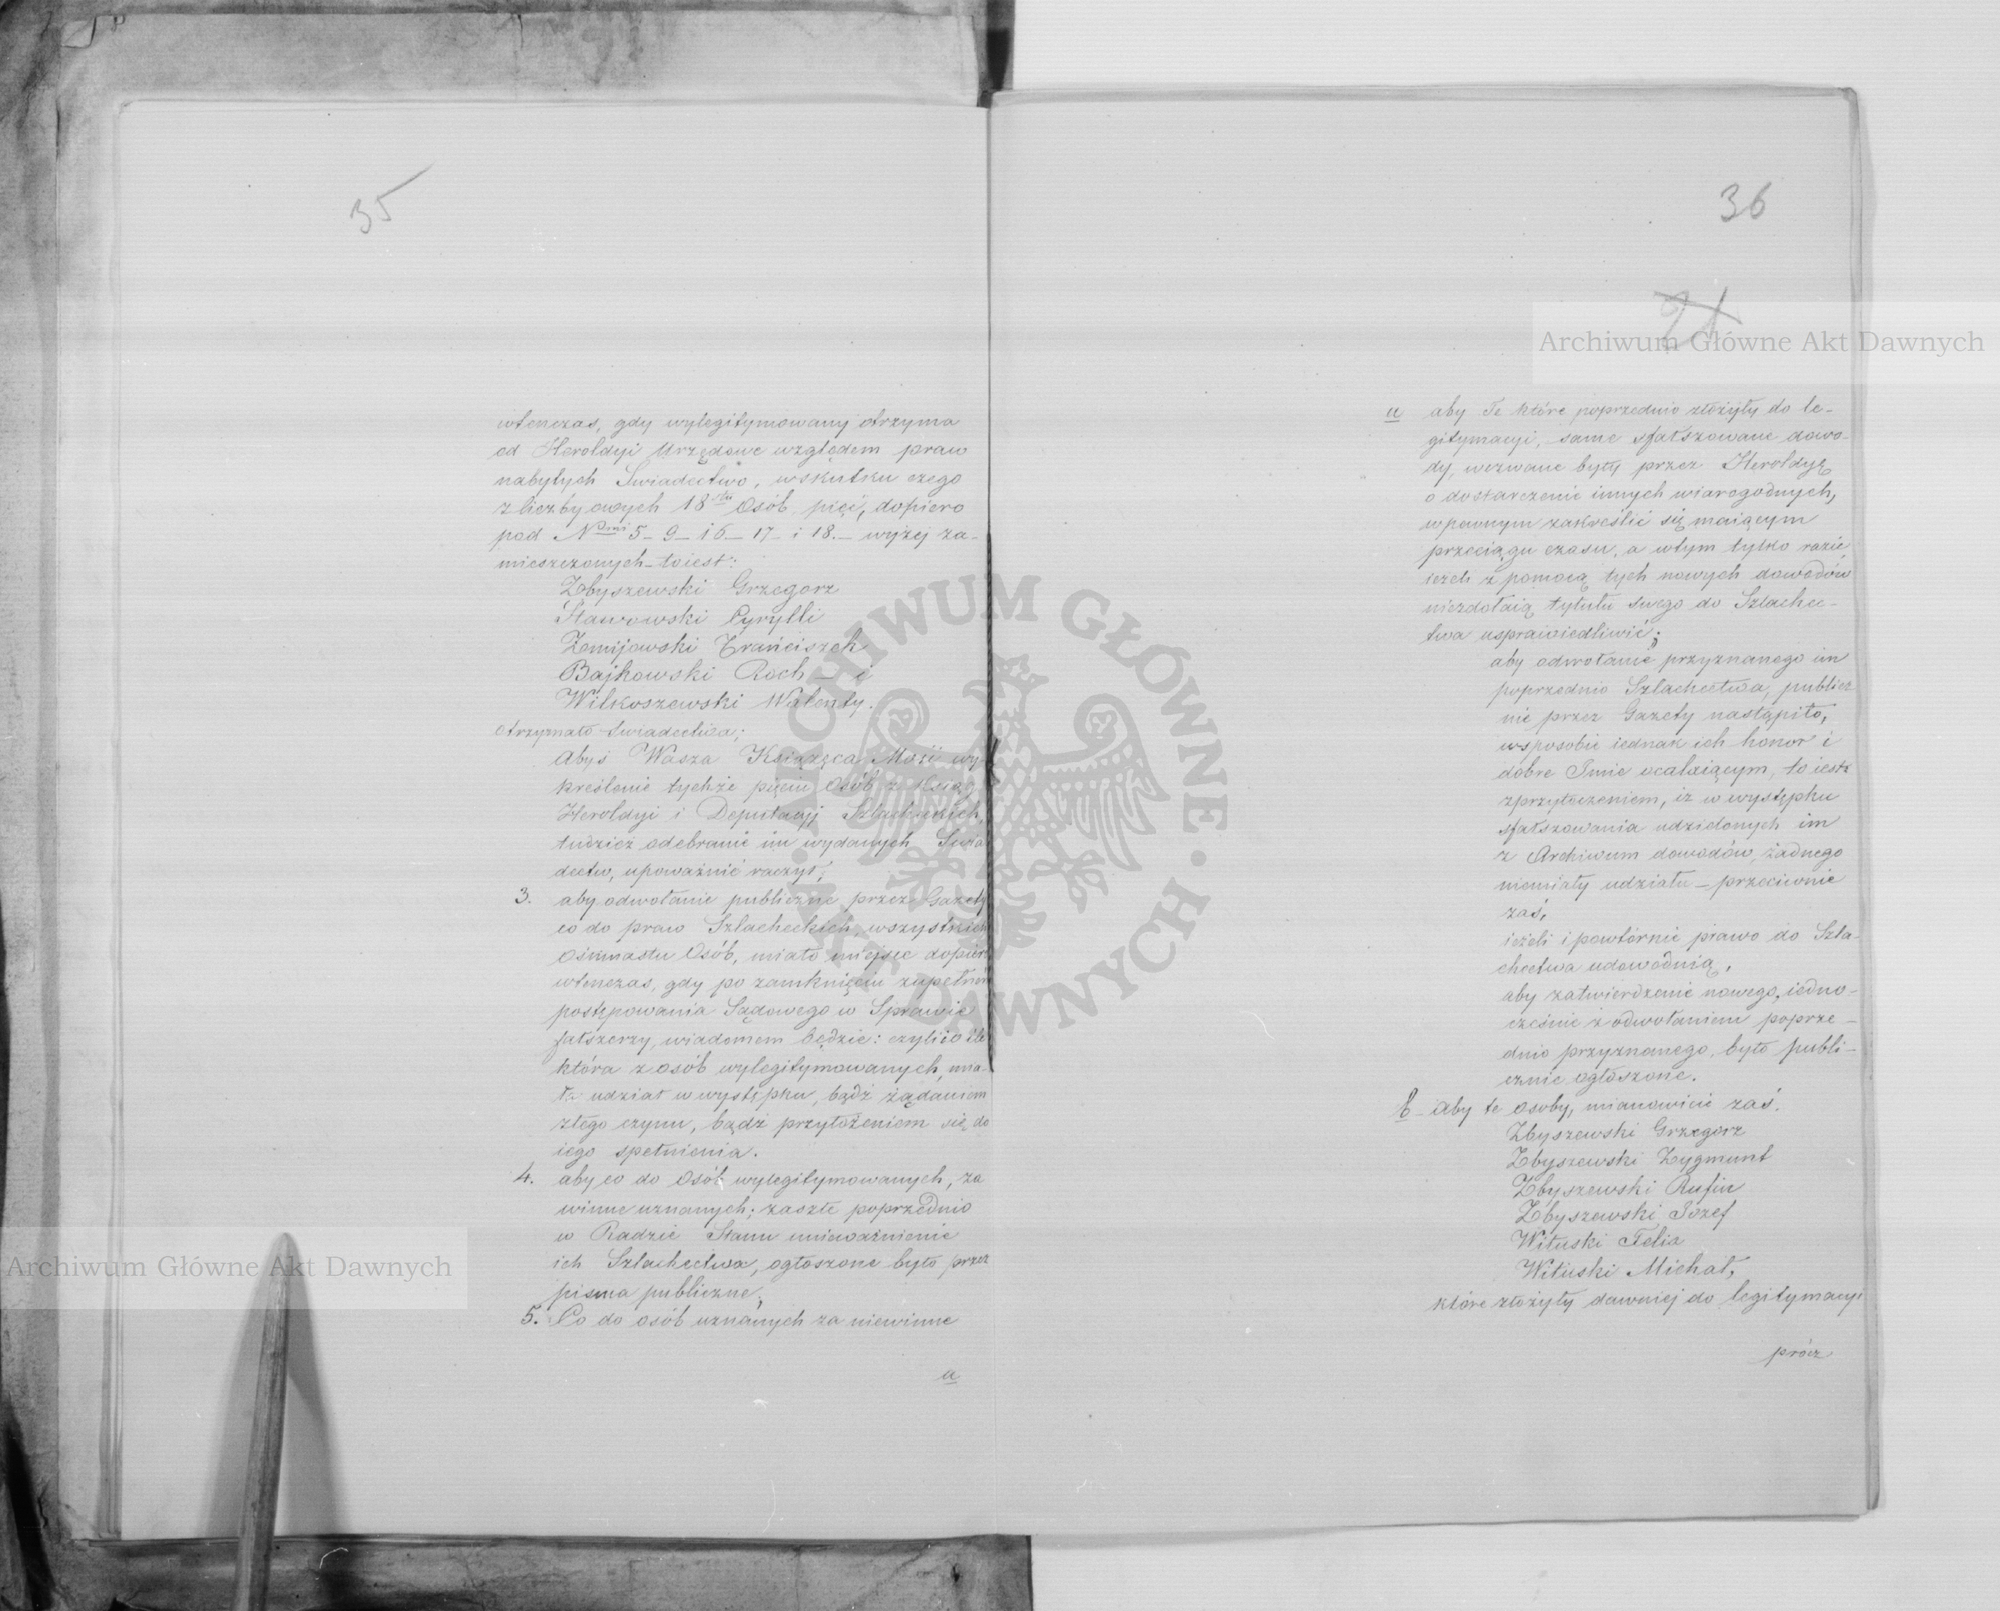 35
wtenczas, gdy wylegitymowany otrzyma
od Heroldyi Urzędowe względem praw
nabytych Swiadectwo, wskutku czego
z liczby owych 18stu Osób pięć, dopiero
pod Nrmi 5 – 9 – 16 – 17 – i 18. – wyżej za-
mieszczonych – toiest:
Zbyszewski Grzegorz
Stawowski Cyrylli
Żmijowski Franciszek
Bajkowski Roch – i
Wilkoszewski Walenty.
otrzymało świadectwa;
Abyś Wasza Książęca Mość wy-
kreślenie tychże pięciu Osób z Ksiąg
Heroldyi i Deputacyj Szlacheckich,
tudzież odebranie im wydanych Swia
dectw, upoważnić raczył;
3. aby odwołanie publiczne przez Gazety
co do praw Szlacheckich, wszystkich
Ośmnastu Osób, miało miejsce dopiero
wtenczas, gdy po zamknięciu zupełnem
postępowania Sądowego w Sprawie
fałszerzy, wiadomem będzie: czyli i o ile
która z osób wylegitymowanych, mia-
ła udział w występku, bądź żądaniem
złego czynu, bądź przyłożeniem się do
iego spełnienia.
4. aby co do Osób wylegitymowanych, za
winne uznanych; zaszłe poprzednio
w Radzie Stanu unieważnienie
ich Szlachectwa, ogłoszone było przez
pisma publiczne;
5. Co do osób uznanych za niewinne
a
36
21
a aby Te które poprzednio złożyły do le-
gitymacyi, same sfałszowane dowo-
dy, wezwane były przez Heroldyę
o dostarczenie innych wiarogodnych,
w pewnym zakreślić się maiącym
przeciągu czasu, a w tym tylko razie,
ieżeli z pomocą tych nowych dowodów
niezdołaią tytułu swego do Szlachec-
twa usprawiedliwić;
aby odwołanie przyznanego im
poprzednio Szlachectwa, publicz
nie przez Gazety nastąpiło,
w sposobie iednak ich honor i
dobre Imie ocalaiącym, to iest z
zprzytoczeniem, iz w występku
sfałszowania udzielonych im
z Archiwum dowodów, żadnego
niemiały udziału – przeciwnie
zaś,
ieżeli i powtórnie prawo do Szla-
chectwa udowodnią,
aby zatwierdzenie nowego, iedno-
cześnie z odwołaniem poprze-
dnio przyznanego, było publi-
cznie ogłoszone.
b – Aby te osoby, mianowicie zaś.
Zbyszewski Grzegorz
Zbyszewski Zygmunt
Zbyszewski Rufin
Zbyszewski Józef
Wituski Felix
Wituski Michał,
które złożyły dawniej do legitymacyi
prócz
Archiwum Główne Akt Dawnych
Archiwum Główne Akt Dawnych
ARCHIWUM GŁÓWNE · AKT DAWNYCH ·